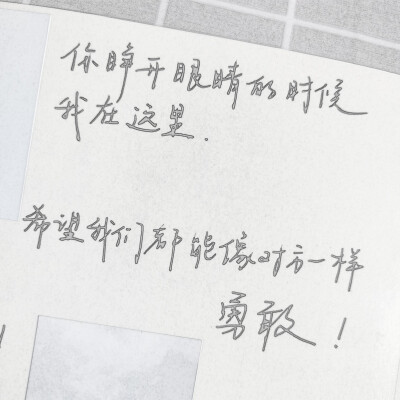 你睁开眼睛的时候
我在这里.
希望我们都能像对方一样
勇敢!